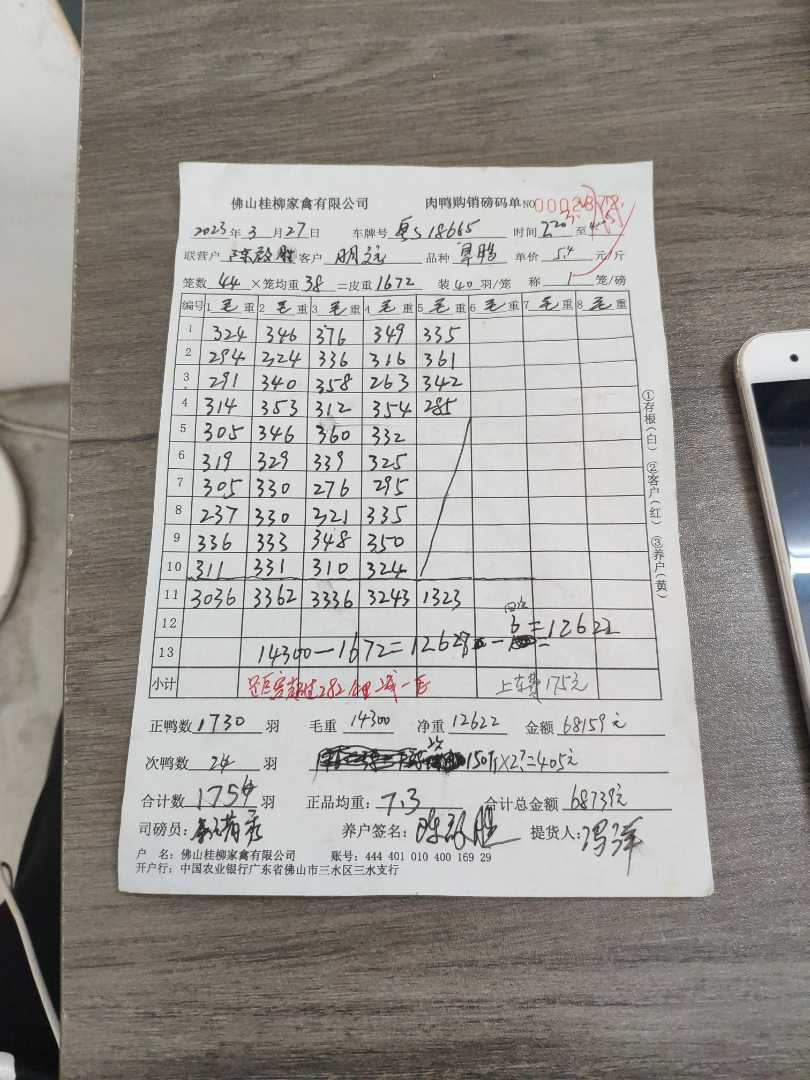 佛山桂柳家禽有限公司 肉鸭购销磅码单 NO 0002878
2023年3月27日 车牌号 粤S18665 时间 至
联营户 客户 品种 单价 5.4 元/斤
笼数 44 ×笼均重 38 =皮重 1672 装 40 羽/笼 称 1 笼/磅
编号 1 毛 重 2 毛 重 3 毛 重 4 毛 重 5 毛 重 6 毛 重 7 毛 重 8 毛 重
1 324 346 376 349 335
2 294 324 336 316 361
3 291 340 358 263 342
4 314 353 312 354 285
5 305 346 360 332
6 319 329 339 325
7 305 330 276 295
8 237 330 321 335
9 336 333 348 350
10 311 331 310 324
11 3036 3362 3336 3243 1323
12
13 14300-1672=12628-6=12622
小计 282 减一毛 上车费175元
①存根(白) ②客户(红) ③养户(黄)
正鸭数 1730 羽 毛重 14300 净重 12622 金额 68159元
次鸭数 24 羽 150斤×2.7=405元
合计数 1754 羽 正品均重: 7.3 合计总金额 68739元
司磅员: 养户签名: 提货人:
户 名: 佛山桂柳家禽有限公司 账号: 444 401 010 400 169 29
开户行: 中国农业银行广东省佛山市三水区三水支行